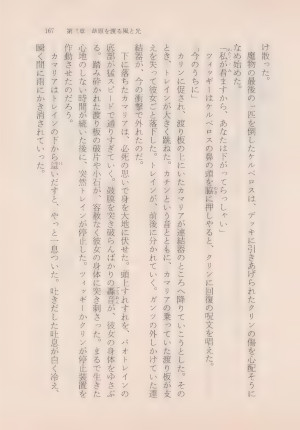 け散った。
魔物の最後の一匹を倒したケルベロスは、デッキに引きあげられたクリンの傷を心配そうに
なめ始めた。
「私が看ますから、あなたは下がってらっしゃい」
フィッギーはケルベロスの鼻づらを脇に押しやると、クリンに回復の呪文を唱えた。
「今のうちに」
カリンに促され、渡り板の上にいたカマリアが連結器のところへ降りていこうとした。その
とき、トレインが大きく跳ねた。カチンという音とともに、カマリアの乗っていた渡り板が支
えを失って彼女ごと落下した。トレインが、前後に分かれていく。ガンツの外しかけていた連
結器が、今の衝撃で外れたのだ。
下に落ちたカマリアは、必死の思いで身を大地に伏せた。頭上すれすれを、バオトレインの
底部が猛スピードで通りすぎていく。鼓膜を突き破らんばかりの轟音が、彼女の身体をゆさぶ
る。踏み砕かれた渡り板の破片や小石が、容赦なく彼女の身体に突き刺さった。まるで生きた
心地のしない時間が続いた後に、突然トレインが停止した。フィッギーかクリンが停止装置を
作動させたのだろう。
カマリアはトレインの下から這いだすと、やっと一息ついた。吐きだした吐息が白く冷え、
瞬く間に雨にかき消されていった。
167